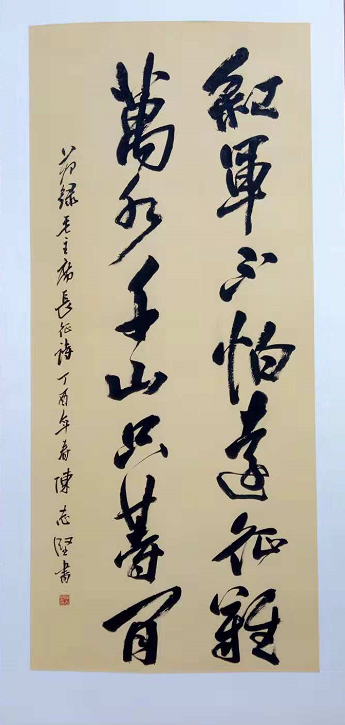 紅軍不怕遠征難
萬水千山只等閒
节録毛主席長征詩丁酉年春陳志堅書